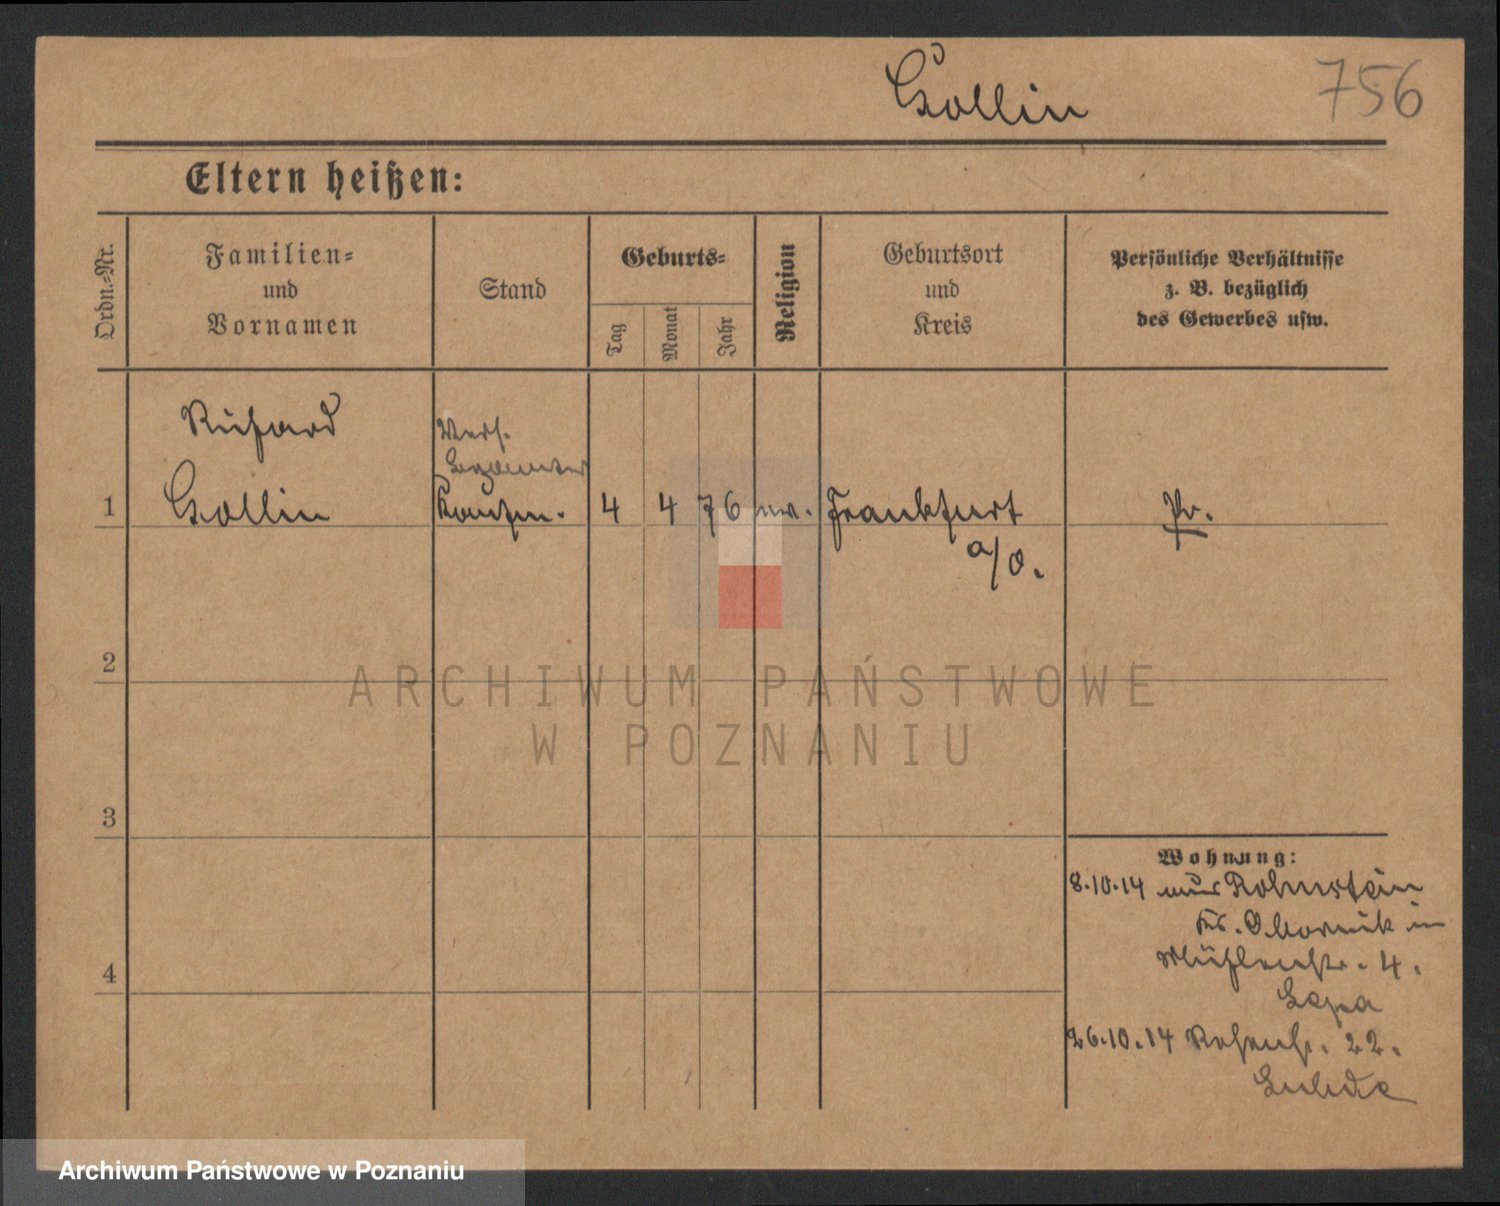 Collin 756
Eltern heißen:
Ordn.-Nr.
Familien-
und
Vornamen
Stand
Geburts-
Tag
Monat
Jahr
Religion
Geburtsort
und
Kreis
Persönliche Verhältnisse
z. B. bezüglich
des Gewerbes usw.
Richard
Vers.
1 Collin Kaufm. 4 4 76 Frankfurt Pr.
a/O.
2
3
4
Wohnung:
8.10.14 aus
Kr. Obornik in
Mühlenstr. 4.
26.10.14 22.
ARCHIWUM PAŃSTWOWE
W POZNANIU
Archiwum Państwowe w Poznaniu